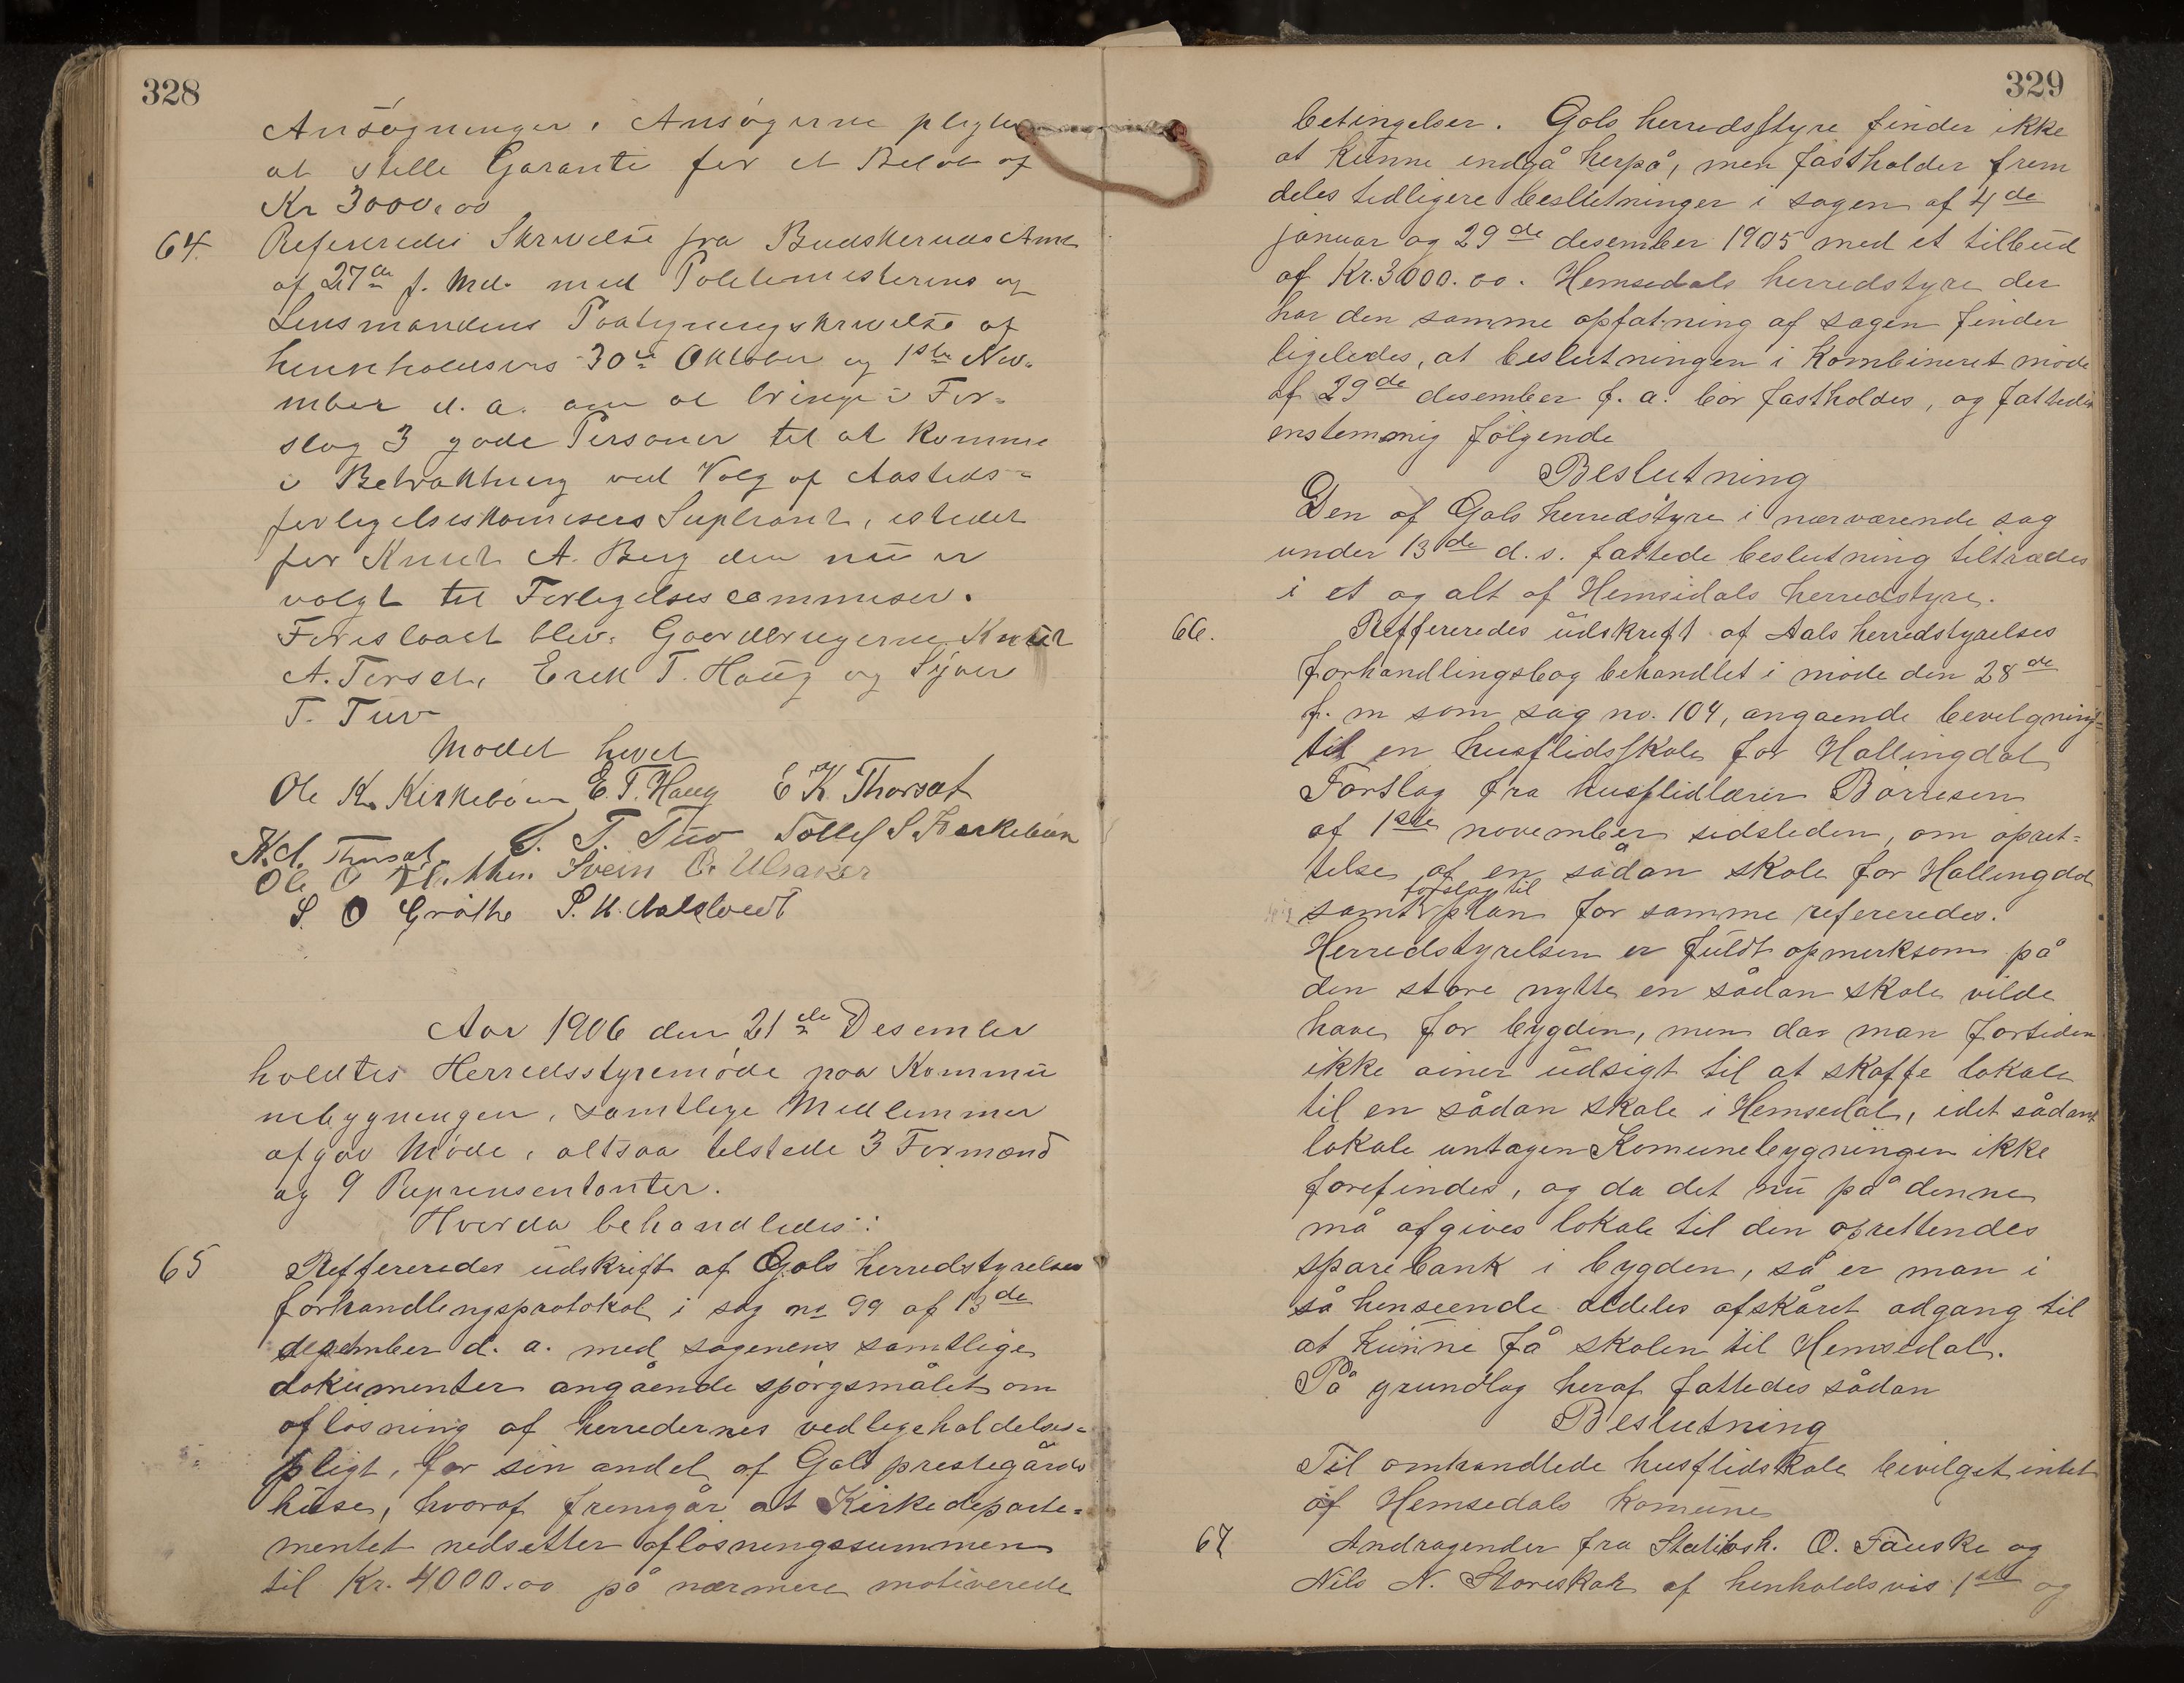 328
Ansøgninger. Ansøgerne pligter
at stille Garanti for et Beløb af
Kr 3000.00
64. Refereredes Skrivelse fra Buskeruds Amt
af 27de f. Md. med Politimesterens og
Lensmandens Paategningsskrivelse af
henholdsvis 30te Oktober og 1ste Nov-
mber d. a. om at bringe i For-
slag 3 gode Personer til at komme
i Betraktning ved Valg af Aasteds-
forligelseskomisers Supleant, istedet
for Knut A. Berg der nu er
valgt til Forligelsescommiser.
Foreslaaet blev: Gaardbrugerne Knut
A. Torset, Erik T. Haug og Syver
T. Tuv
Mødet hevet
Ole K. Kirkebøen E. T. Haug E K. Thorset
K. A. Thorset S. T. Tuv Tollef S Kirkebøen
Ole O Svein O. Ulsaker
S. O Grøthe S. H.
Aar 1906 den 21de Desember
holdtes Herredsstyremøde paa Kommu
nebygningen, samtlige Medlemmer
afgav Møde, altsaa tilstede 3 Formænd
og 9 Reprensentanter.
Hvorda behandledes:
65 Reffereredes udskrift af Gols herredstyrelses
forhandlingsprotokol i sag no 99 af 13de
desember d. a. med sagenens samtlige
dokumenter angående spørgsmålet om
afløsning af herredernes vedligeholdelses-
pligt, for sin andel af Gols prestegårds
huse, hvoraf fremgår at Kirkedeparte-
mentet nedsetter afløsningssummen
til Kr. 4000.00 på nærmere motiverede
329
betingelser. Gols herredsstyre finder ikke
at kunne indgå herpå, men fastholder frem
deles tidligere beslutninger i sagen af 4de
januar og 29de desember 1905 med et tilbud
af Kr. 3000.00. Hemsedals herredstyre der
har den samme opfatning af sagen finder
ligeledes, at beslutningen i kombineret møde
af 29de desember f. a. bør fastholdes, og fattedes
enstemmig følgende
Beslutning
Den af Gols herredstyre i nærværende sag
under 13de d. s. fattede beslutning tiltrædes
i et og alt af Hemsedals herredstyre.
66. Reffereredes udskrift af Aals herredstyrelses
forhandlingsbog behandlet i møde den 28de
f. m som sag no. 104, angaende bevilgning
til en husflidsskole for Hallingdal
Forslag fra husflidlærer Børresen
af 1ste november sidsleden, om opret-
telse af en sådan skole for Hallingdal
samt forslag til plan for samme refereredes.
Herredstyrelsen er fuldt opmerksom på
den store nytte en sådan skole vilde
have for bygden, men dar man fortiden
ikke øiner udsigt til at skaffe lokale
til en sådan skole i Hemsedal, idet sådant
lokale untagen Komunebygningen ikke
forefindes, og da det nu på denne
må afgives lokale til den oprettendes
sparebank i bygden, så er man i
så henseende aldeles afskåret adgang til
at kunne få skolen til Hemsedal.
På grundlag heraf fattedes sådan
Beslutning
Til omhandlede husflidskole bevilget intet
af Hemsedals komune
67 Andragender fra O. Fauske og
Nils N. Storeskar af henholdsvis 1ste og